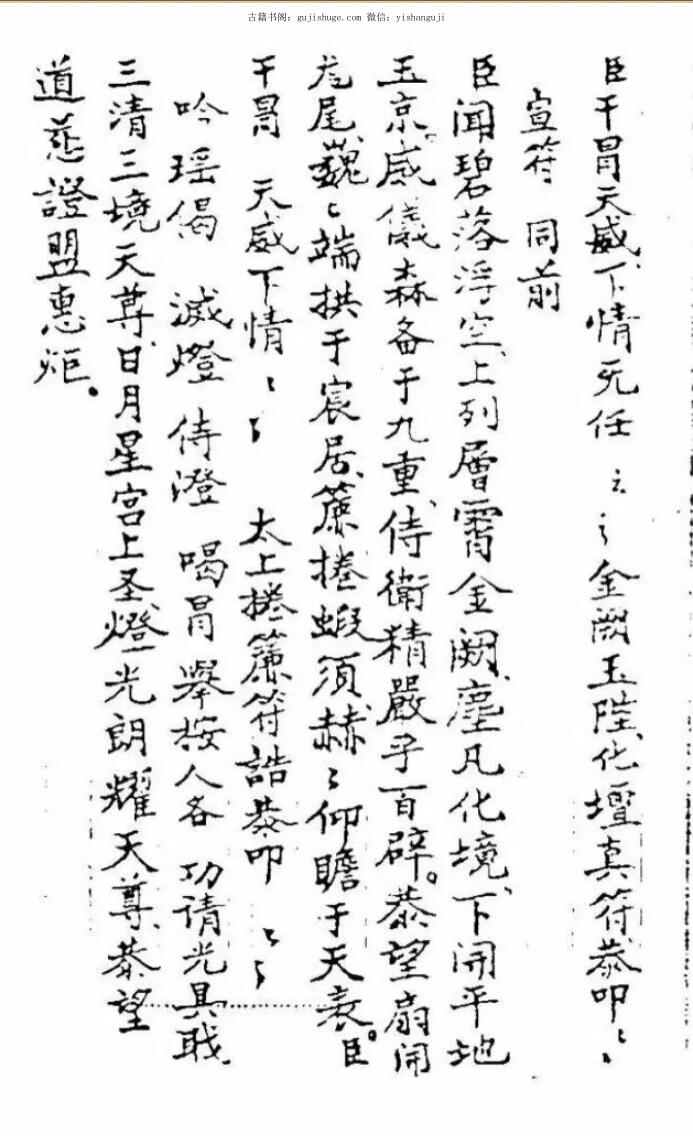 古籍书阁：gujishuge.com 微信：yishanguji
臣干冒天威、下情无任 云〻金阙玉陛、化壇真符、恭叩〻〻
宣符 同前
臣闻碧落浮空、上列層霄金阙、塵凡化境、下開平地
玉京。威儀森备于九重、侍衛精嚴乎百辟。恭望扇開
尾、巍〻端拱于宸居、簾捲蝦須、赫〻仰瞻于天表。臣
干冒 天威下情〻〻 太上捲簾符誥恭叩 〻〻
吟瑶偈 滅燈 侍澄 喝冒 舉按人各 功请光具戢
三清三境天尊、日月星宫上圣、燈光朗耀天尊、恭望
道慈證盟惠炬。